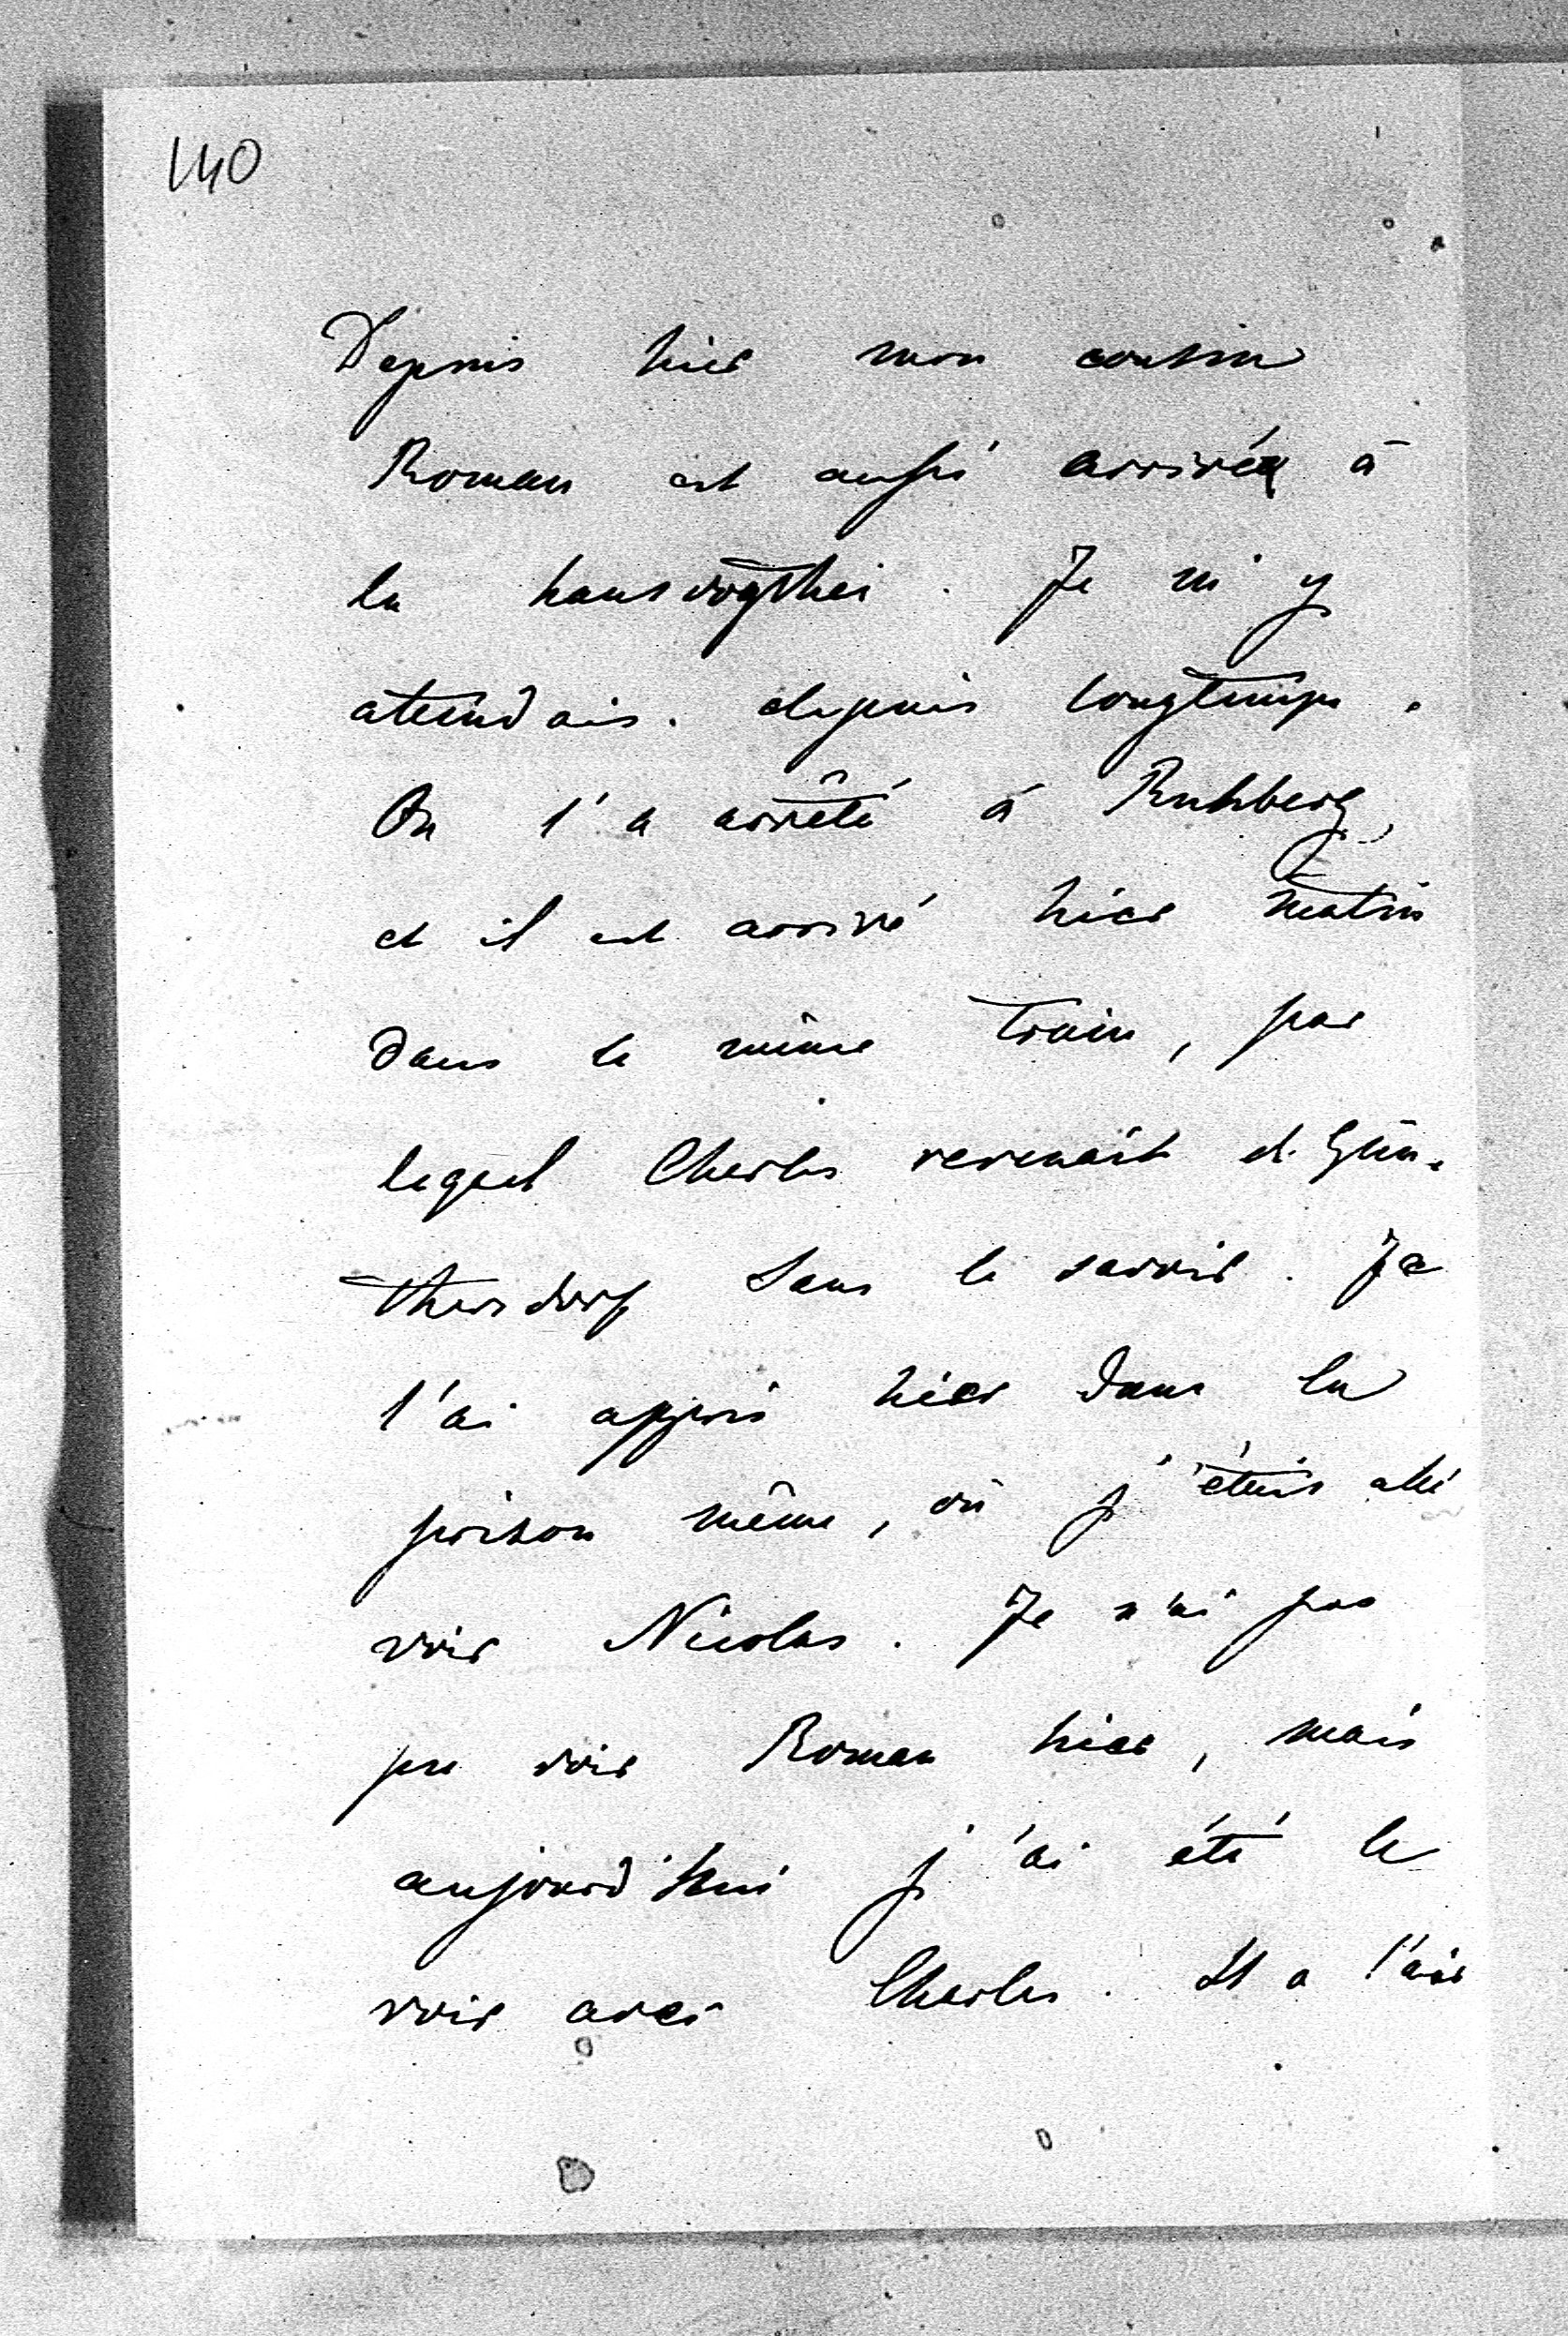 140
Depuis hier mon cousin
Roman est aussi arrivé à
la hausvogthei. Je m'y
attendais. depuis longtemps.
On l'a arrêté à Ruhberg,
et il est arrivé hier matin
dans le même train, par
lequel Charles revenait de Gün-
thersdorf sans le savoir. Je
l'ai appris hier dans la
prison même, où j'étais allé
voir Nicolas. Je n'ai pas
pu voir Roman hier, mais
aujourd'hui j'ai été le
voir avec Charles. Il a l'air